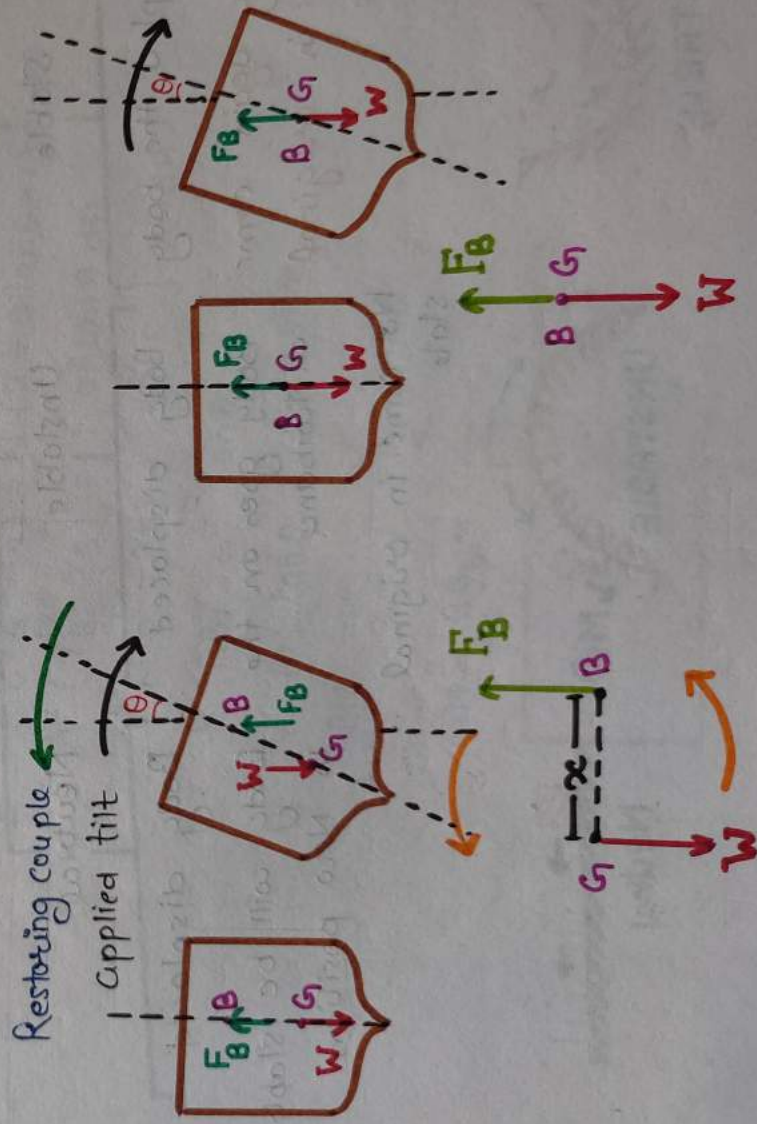 Restoring couple
applied tilt
F_B B
G
W
θ
B
W F_B
G
F_B
G x B
W
F_B
B G
W
θ
F_B
B G
W
F_B
B G
W